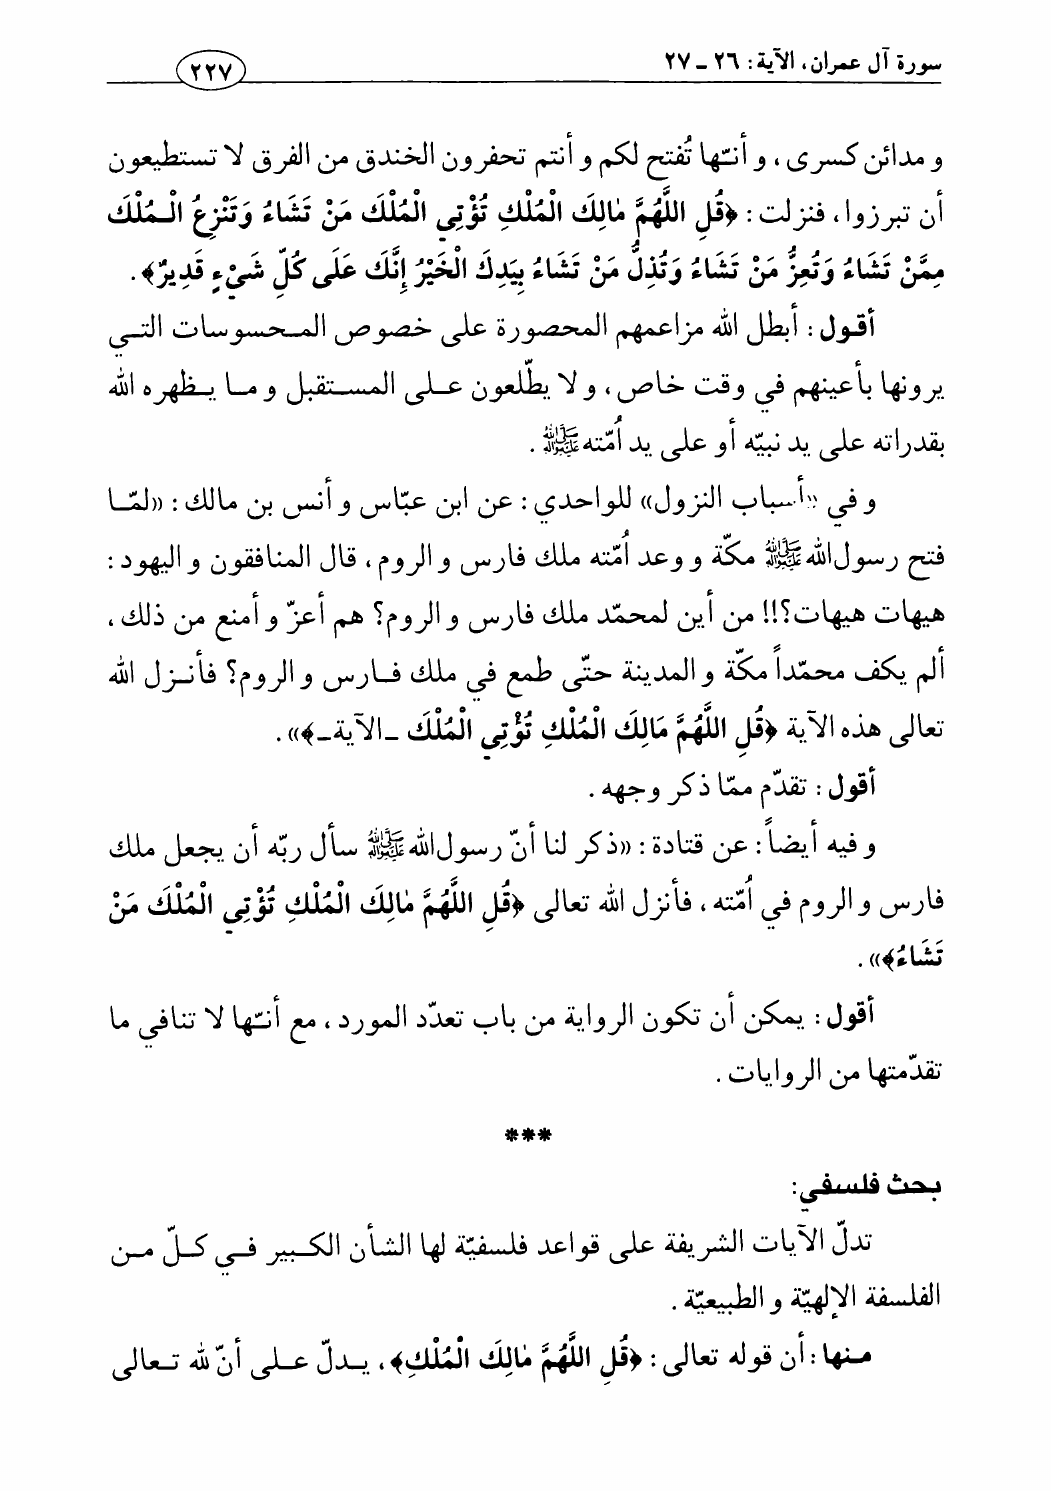 سورة آل عمران، الآية: ٢٦ ـ ٢٧
٢٢٧
و مدائن كسرى، و أنّها تُفتح لكم و أنتم تحفرون الخندق من الفرق لا تستطيعون
أن تبرزوا، فنزلت: ﴿قُلِ اللَّهُمَّ مٰالِكَ الْمُلْكِ تُؤْتِي الْمُلْكَ مَنْ تَشَاءُ وَتَنْزِعُ الْمُلْكَ
مِمَّنْ تَشَاءُ وَتُعِزُّ مَنْ تَشَاءُ وَتُذِلُّ مَنْ تَشَاءُ بِيَدِكَ الْخَيْرُ إِنَّكَ عَلَى كُلِّ شَيْءٍ قَدِيرٌ﴾.
أقول: أبطل الله مزاعمهم المحصورة على خصوص المحسوسات التي
يرونها بأعينهم في وقت خاص، و لا يطّلعون على المستقبل و ما يظهره الله
بقدراته على يد نبيّه أو على يد اُمّته ﷺ.
و في «أسباب النزول» للواحدي: عن ابن عبّاس و أنس بن مالك: «لمّا
فتح رسول الله ﷺ مكّة و وعد اُمّته ملك فارس و الروم، قال المنافقون و اليهود:
هيهات هيهات؟!! من أين لمحمّد ملك فارس و الروم؟ هم أعزّ و أمنع من ذلك،
ألم يكف محمّداً مكّة و المدينة حتّى طمع في ملك فارس و الروم؟ فأنزل الله
تعالى هذه الآية ﴿قُلِ اللَّهُمَّ مَالِكَ الْمُلْكِ تُؤْتِي الْمُلْكَ ـ الآية ـ﴾».
أقول: تقدّم ممّا ذكر وجهه.
و فيه أيضاً: عن قتادة: «ذكر لنا أنّ رسول الله ﷺ سأل ربّه أن يجعل ملك
فارس و الروم في اُمّته، فأنزل الله تعالى ﴿قُلِ اللَّهُمَّ مٰالِكَ الْمُلْكِ تُؤْتِي الْمُلْكَ مَنْ
تَشَاءُ﴾».
أقول: يمكن أن تكون الرواية من باب تعدّد المورد، مع أنّها لا تنافي ما
تقدّمتها من الروايات.
***
بحث فلسفي:
تدلّ الآيات الشريفة على قواعد فلسفيّة لها الشأن الكبير في كلّ من
الفلسفة الإلهيّة و الطبيعيّة.
منها: أن قوله تعالى: ﴿قُلِ اللَّهُمَّ مٰالِكَ الْمُلْكِ﴾، يدلّ على أنّ لله تعالى